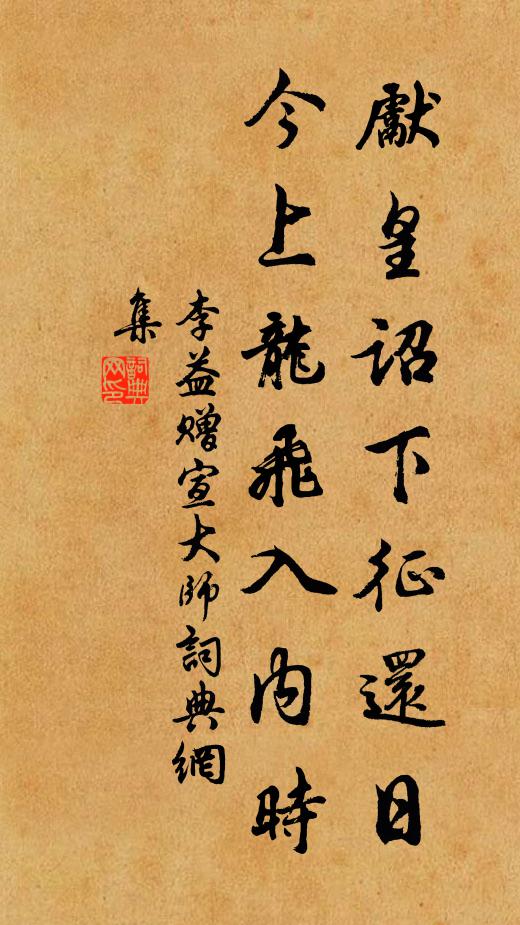 獻皇詔下征還日
今上龍飛入内時
李益赠宣大師詞典網
集
詞典
网印